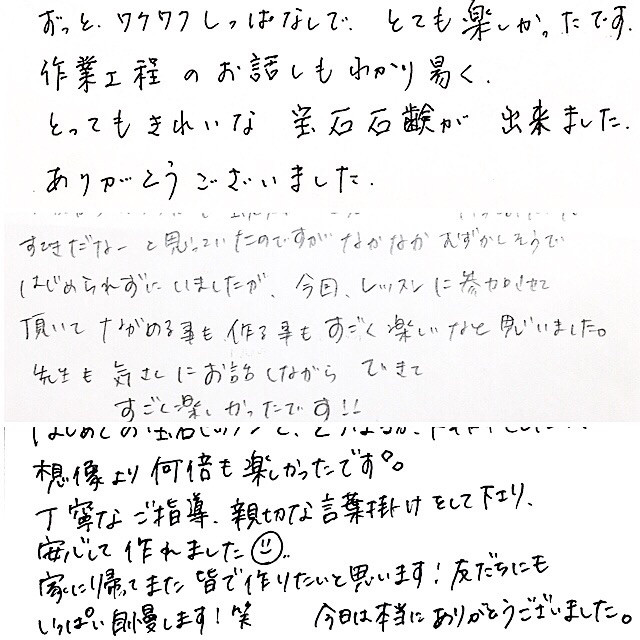 ずっと、ワクワクしっぱなしで、とても楽しかったです。
作業工程のお話しもわかり易く、
とってもきれいな 宝石石鹸が 出来ました。
ありがとうございました。
すてきだなーと思っていたのですがなかなかむずかしそうで
はじめられずにいましたが、今回、レッスンに参加させて
頂いてながめる事も作る事もすごく楽しいなと思いました。
先生も気さくにお話しながらできて
すごく楽しかったです!!
想像より何倍も楽しかったです。
丁寧なご指導、親切な言葉掛けをして下さり、
安心して作れました
家に帰ってまた皆で作りたいと思います!友だちにも
いっぱい自慢します!笑 今日は本当にありがとうございました。